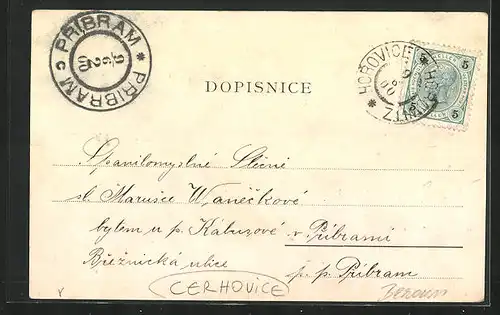 PŘÍBRAM * PŘIBRAM C
9
6
2
00
HOŘOVICE * HOŘOWITZ *
5 5
DOPISNICE
Spanilomyslné Slečně
sl. Marušce Waněčkové
bytem u p. Kabuzové v Příbrami
Březnická ulice p. p. Příbram
CERHOVICE
BEROUN